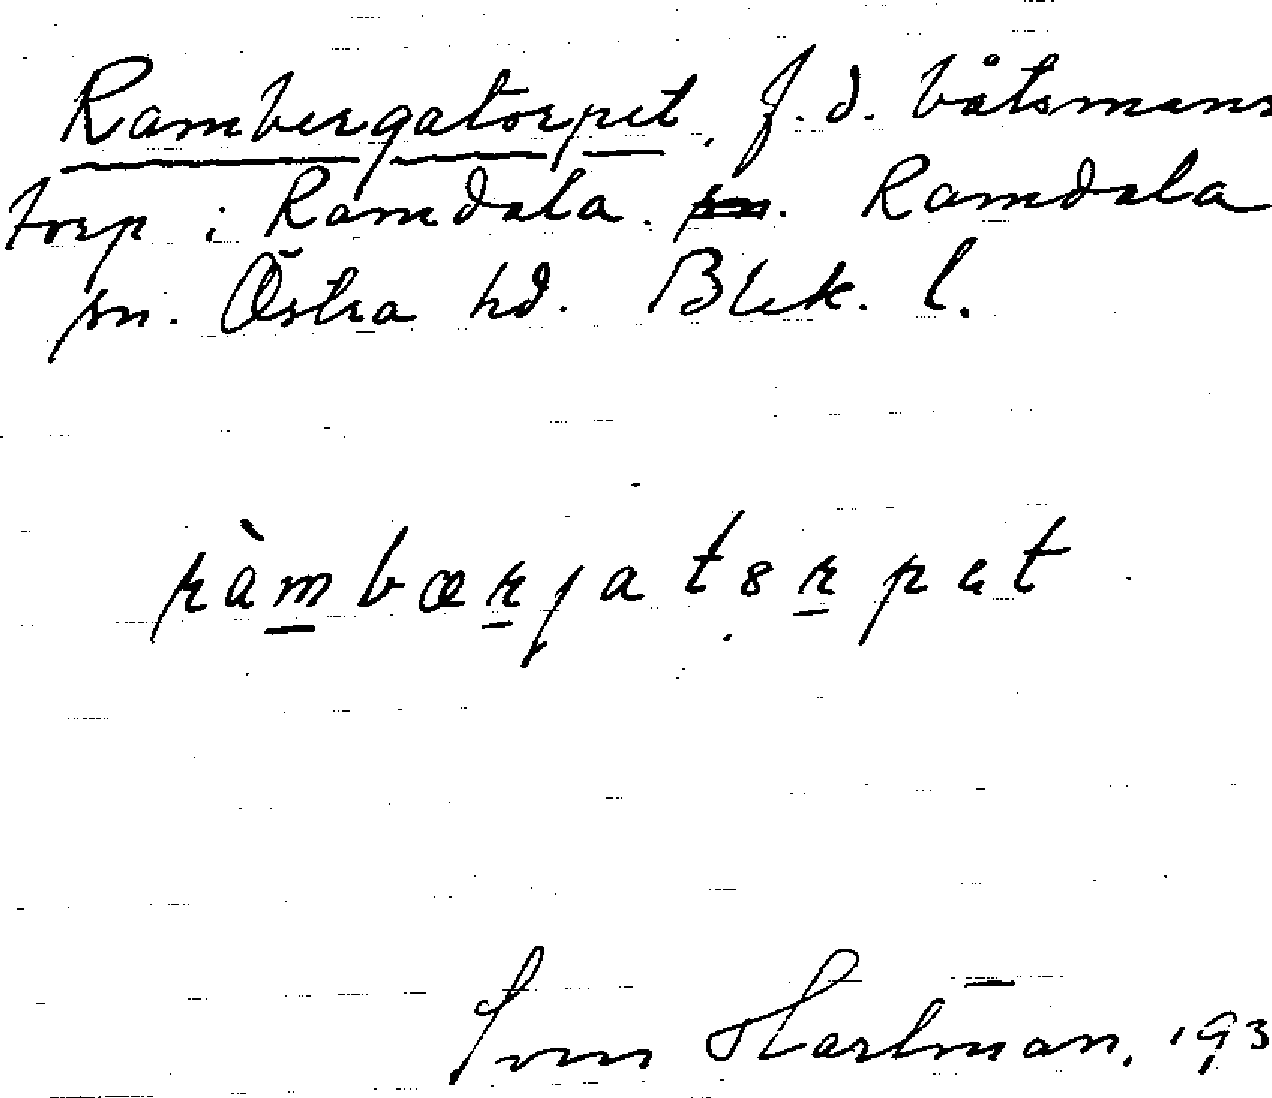 Rambergatorpet, f.d. båtsmans
torp i Ramdala. sn. Ramdala
sn. Östra hd. Blek. l.
ràmbærjatorpet
Hartman, 193